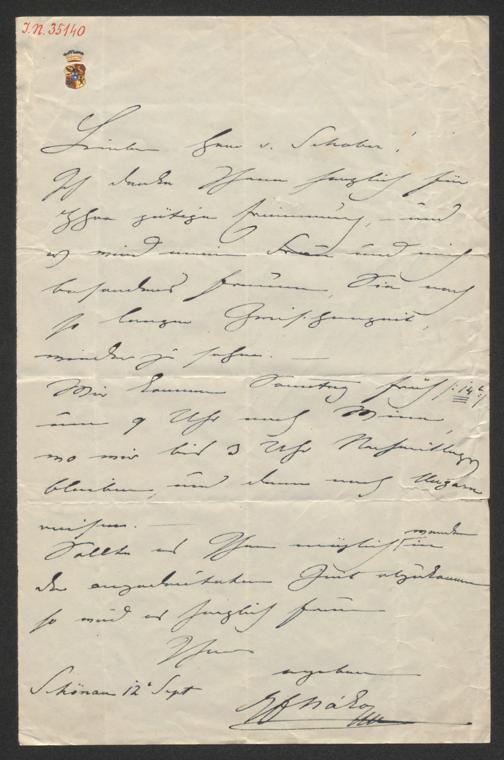 I.N. 35140
Lieber Herr v. Schober!
Ich danke Ihnen herzlich für
Ihre gütige Erinnerung, – und
es wird meine Frau und mich
besonders freuen, Sie nach
so langer Zwischenzeit,
wieder zu sehen. —
Wir kommen Sonntag früh /: 14t :/
um 9 Uhr nach Wien,
wo wir bis 3 Uhr Nachmittags
bleiben, und dann nach Ungarn
reisen. —
Sollte es Ihnen möglich werden in
der angedeuteten Zeit abzukommen
so wird es herzlich freuen
Ihren
ergebenen
Schönau 12t Sept
Nákó